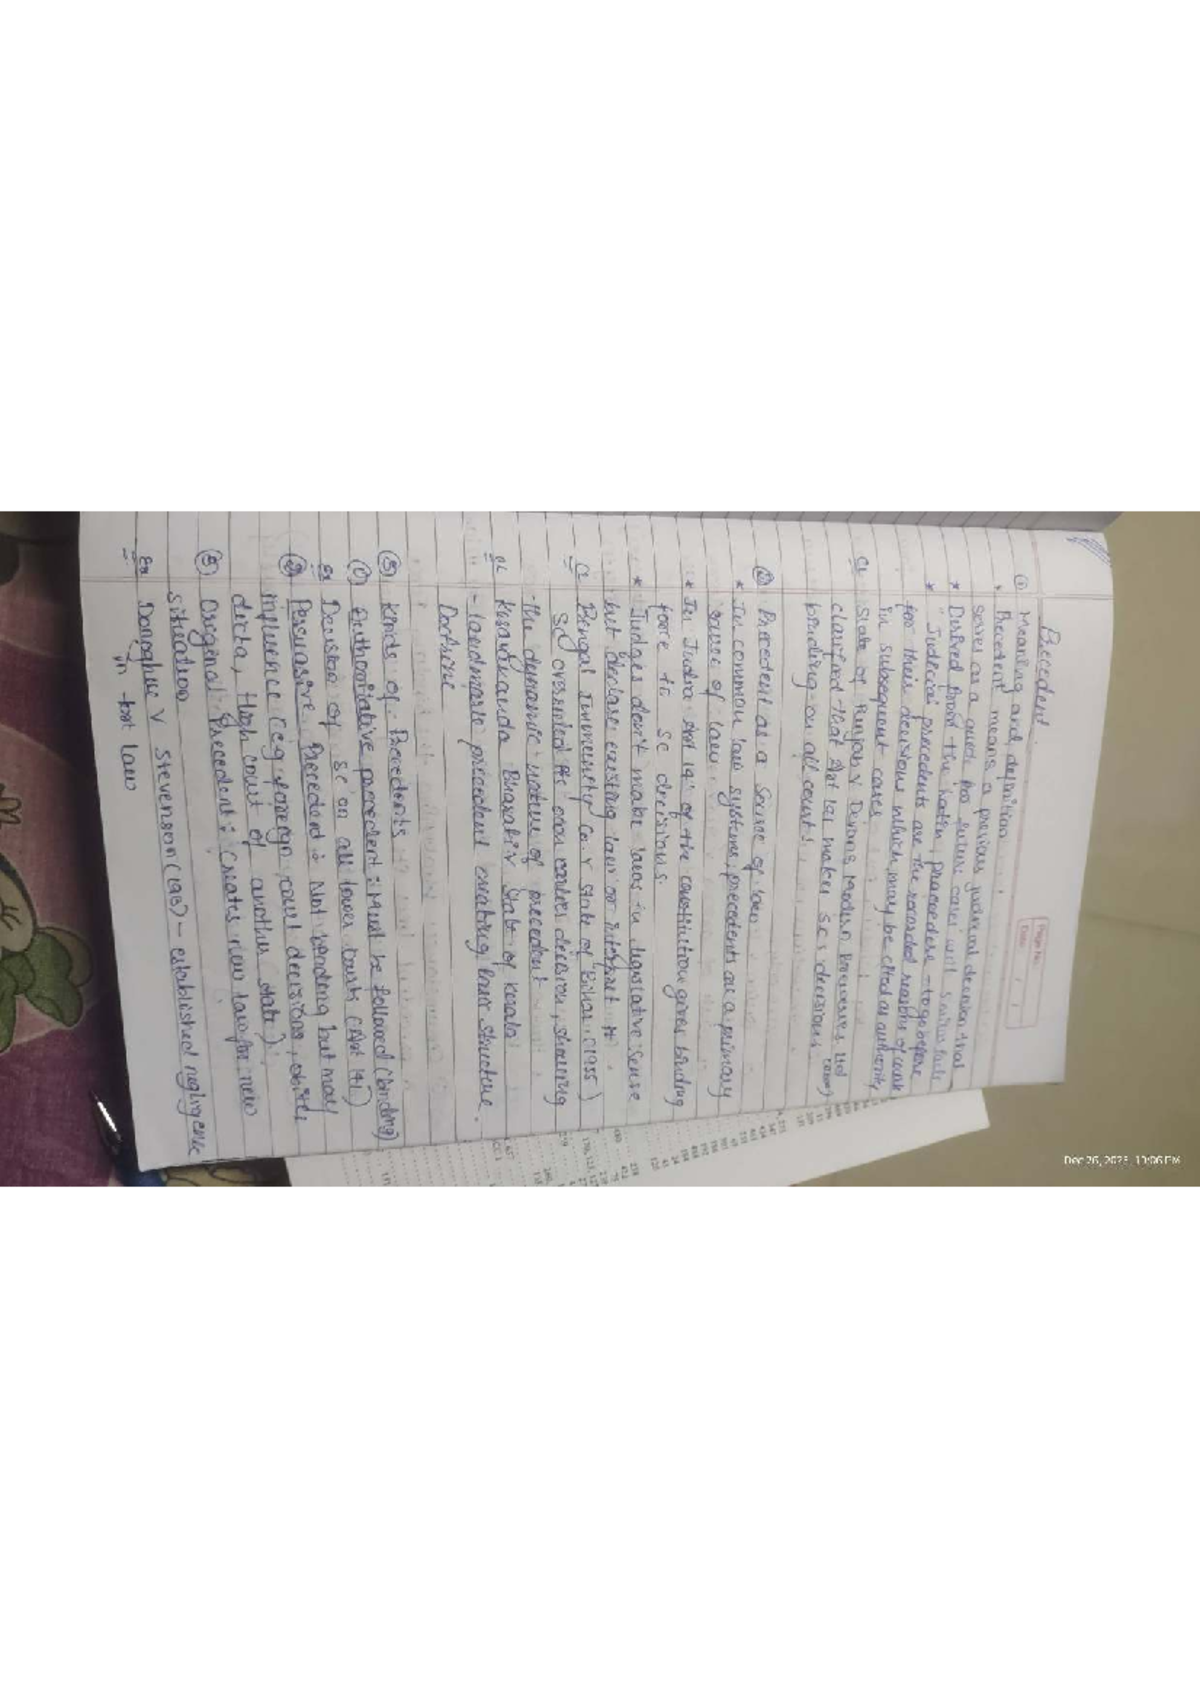 Precedent.
Page No.
Date: / /
① Meaning and definition
* Precedent means a previous judicial decision that
serves as a guide for future cases with similar facts
* Derived from the Latin, praecedere - to go before
* "Judicial precedents are the recorded reasons of court
for their decisions which may be cited as authority
in subsequent cases
CL State of Punjab v Devans Modern Breweries Ltd
clarified that Art 141 makes SC's decisions
binding on all courts
② Precedent as a Source of law
* In common law systems, precedents are a primary
source of law.
* In India Art 141 of the constitution gives binding
force to SC decisions.
* Judges don't make laws in legislative sense
but declare existing law or interpret it.
CL Bengal Immunity Co. v State of Bihar (1955)
SC overruled its own earlier decision, showing
the dynamic nature of precedent
CL Kesavananda Bharati v State of Kerala
- Landmark precedent creating basic structure
Doctrine
③ Kinds of Precedents
① Authoritative precedent: Must be followed (binding)
Ex Decision of SC on all lower courts (Art 141)
② Persuasive Precedent: Not binding but may
influence (e.g foreign court decisions, obiter
dicta, High court of another state)
③ Original Precedent: Creates new law for new
situation
Ex Donoghue v Stevenson - established negligence
in tort law
Dec 26, 2025, 10:06 PM